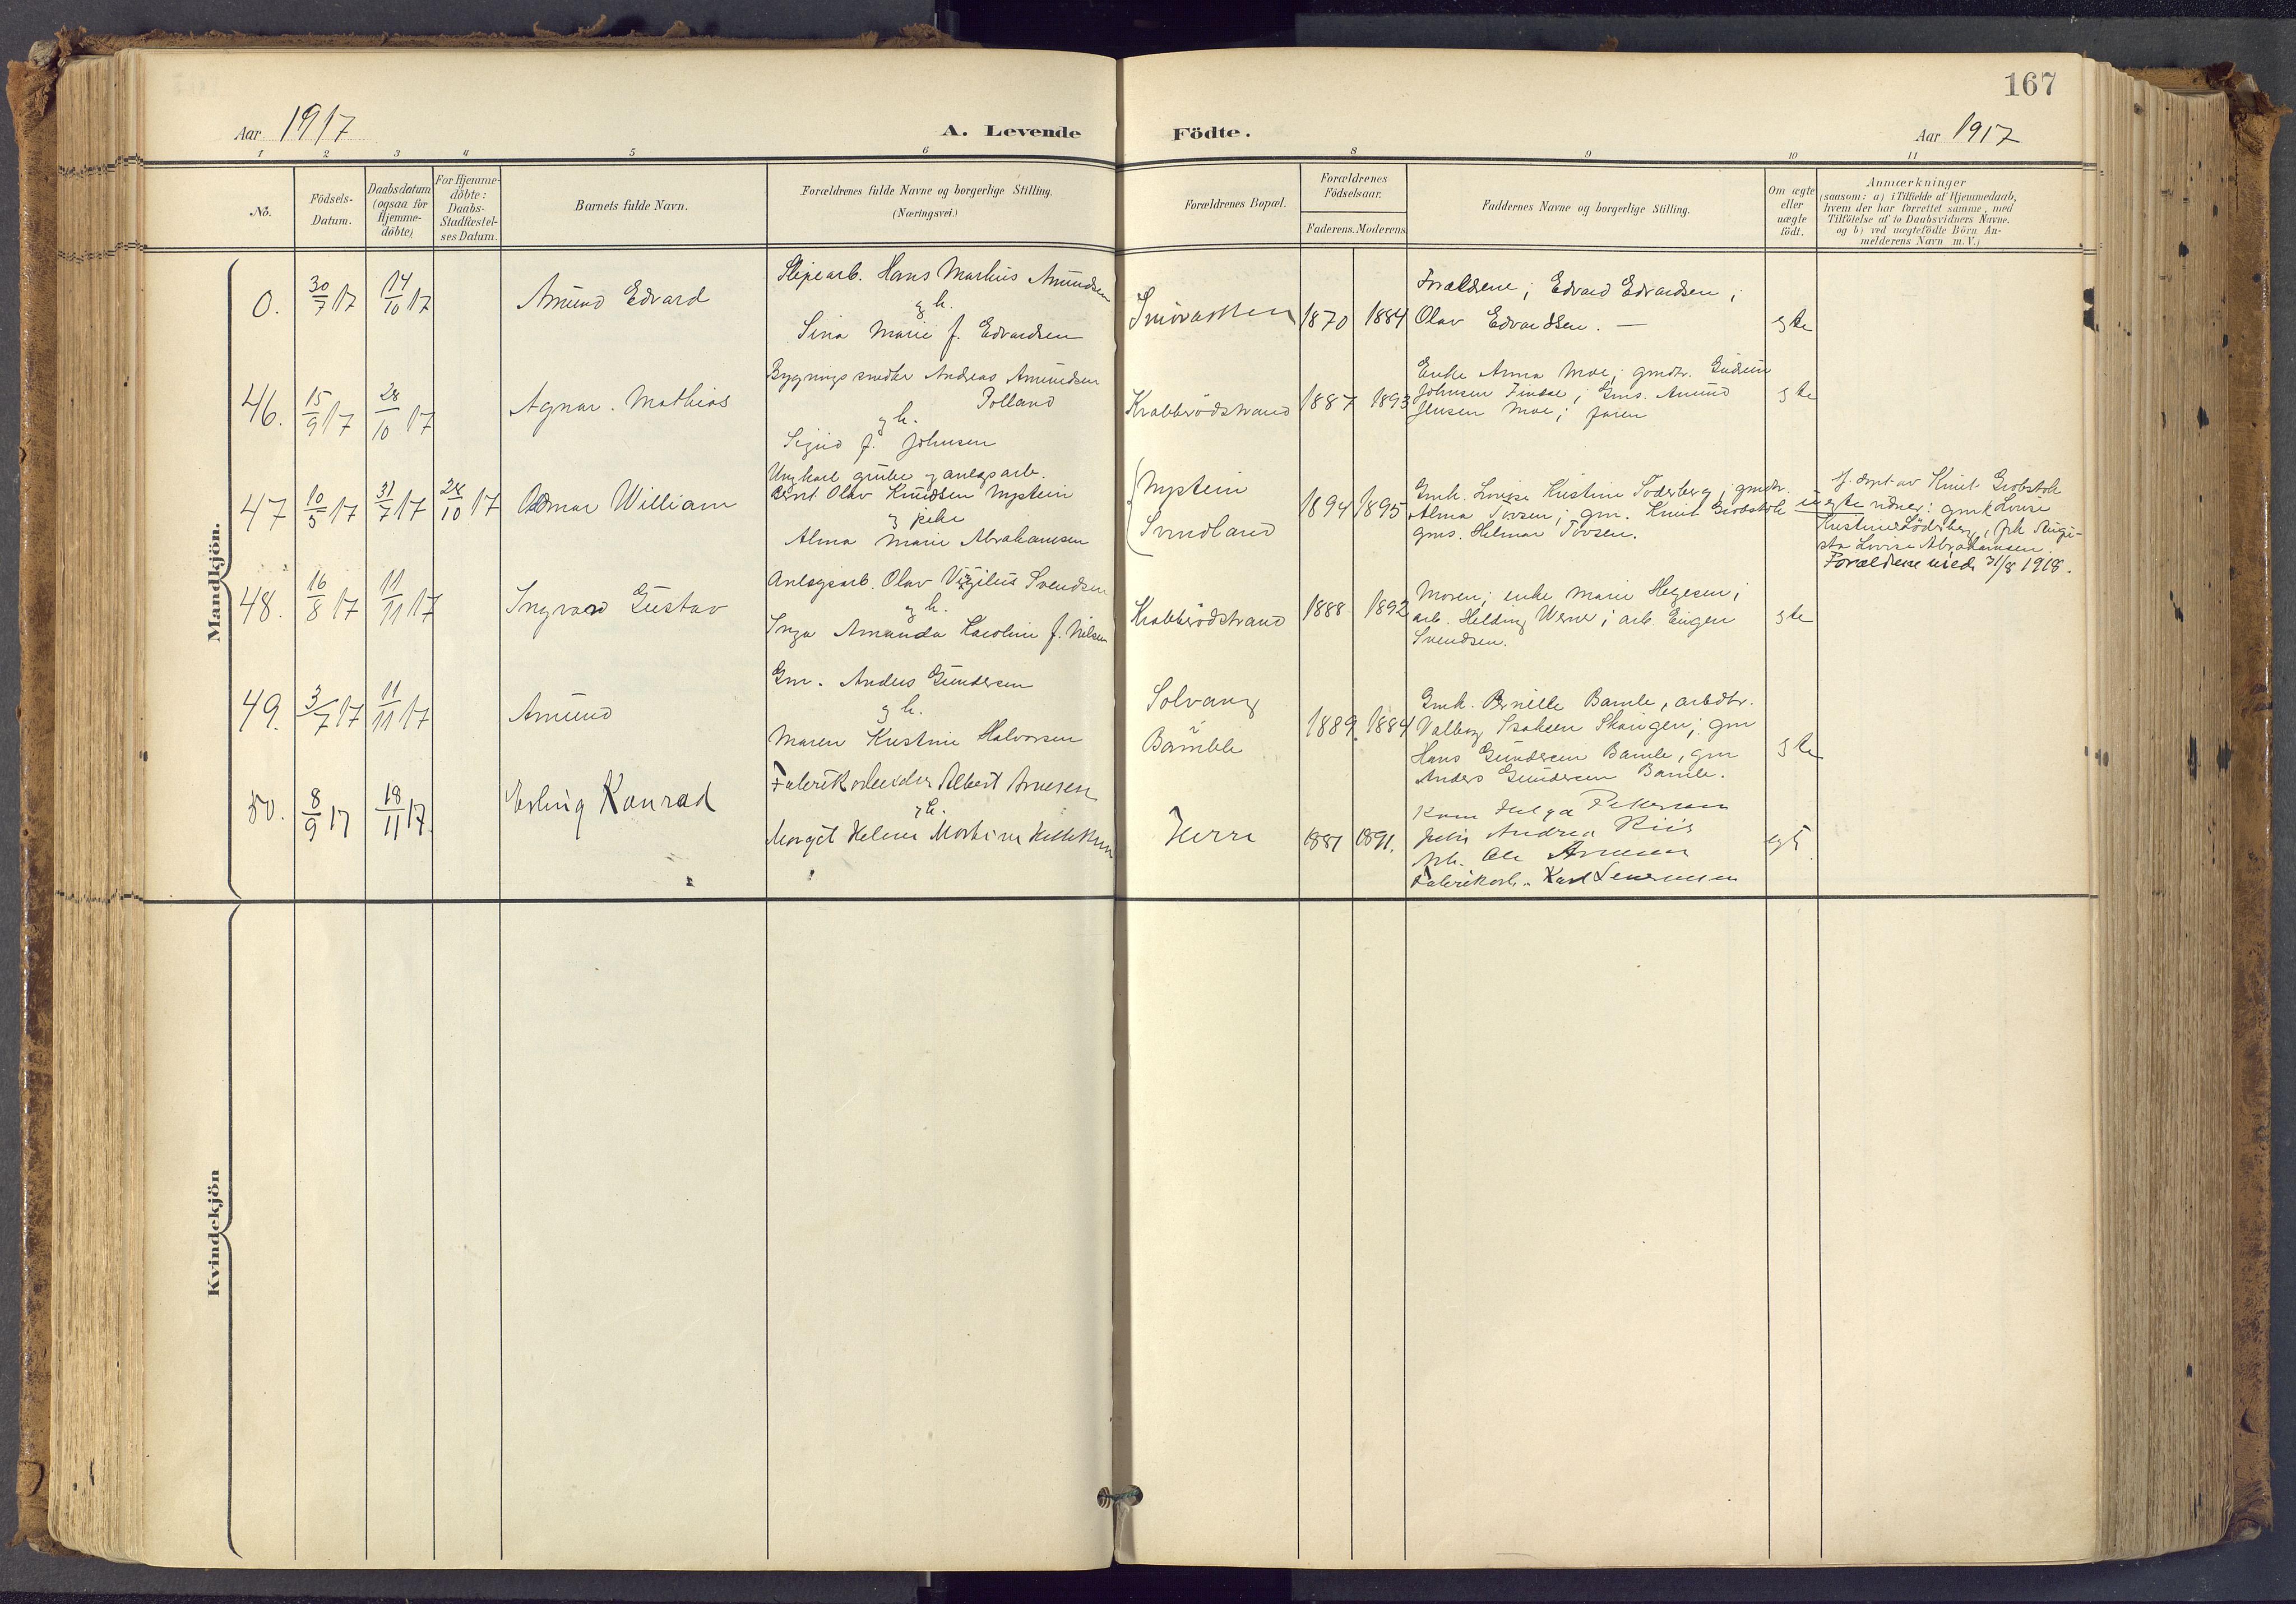 167
Aar 1917
A. Levende Födte.
Aar 1917
1 2 3 4 5 6 8 9 10 11
No.
Födsels-
Datum.
Daabsdatum
(ogsaa for
Hjemme-
döbte).
For Hjemme-
döbte:
Daabs-
Stadfæstel-
ses Datum.
Barnets fulde Navn.
Forældrenes fulde Navne og borgerlige Stilling.
(Næringsvei.)
Forældrenes Bopæl.
Forældrenes
Födselsaar.
Faderens. Moderens.
Faddernes Navne og borgerlige Stilling.
Om ægte
eller
uægte
födt.
Anmærkninger
(saasom: a) i Tilfælde af Hjemmedaab,
hvem der har forrettet samme, med
Tilföielse af to Daabsvidners Navne.
og b) ved uægtefödte Börn An-
melderens Navn m. V.)
Mandkjön.
0.
30/7 17
14/10 17
Amund Edvard
Slipearb. Hans Marthius Amundsen
g h.
Sina Marie f. Edvardsen
1870 1884
Forældrene; Edvard Edvardsen;
Olav Edvardsen. —
egte
46.
15/9 17
28/10 17
Agnar. Mathias
Bygningssnedker Andreas Amundsen
Tolland
g h.
Sigrid f. Johnsen
Krabberödstrand
1887 1893
Enke Anna Moe; gmdtr. Gudrun
Johnsen Findal; Gms. Amund
Jensen Moe; faren
egte
47
10/5 17
31/7 17
28/10 17
Odmar William
Ungkarl grube og anlegsarb.
Bernt Olav Knudsen Nystein
og pike
Alma Marie Abrahamsen
Nystein
Svindland
1894 1895
Gmk. Lovise Kristine Söderberg; gmdtr.
Alma Tovsen; gm. Knut Grobstok
gms. Helmar Tovsen.
uegte
Hj. döpt av Knut Grobstok
vidner: gmk Lovise
Kristine Söderberg, pk Augu-
sta Lovise Abrahamsen.
Forældrene viede 31/8 1918.
48.
16/8 17
11/11 17
Ingvard Gustav
Anlegsarb. Olav Virgilius Svendsen
g h.
Inga Amanda Karoline f. Nilsen
Krabberödstrand
1888 1892
Moren; enke Marie Hegesen;
arb. Helding Werner; arb. Eugen
Svendsen.
egte
49.
3/7 17
11/11 17
Amund
Gm. Anders Gundersen
g h.
Maren Kristine Halvorsen
Solvang
i
Bamble
1889. 1884
Gmk. Pernille Bamle, arbdtr.
Valborg Isaksen Skaugen; gm
Hans Gundersen Bamle, gm
Anders Gundersen Bamle.
egte
50.
8/9 17
18/11 17.
Erling Konrad
Fabrikarbeider Albert Arnesen
g h.
Margit Helene Mathine
Herre
1887 1891.
Kone Helga Pettersen
Pike Andrea Riis
Arb. Ole Arnesen
Fabrikarb. Karl
egte
Kvindekjön